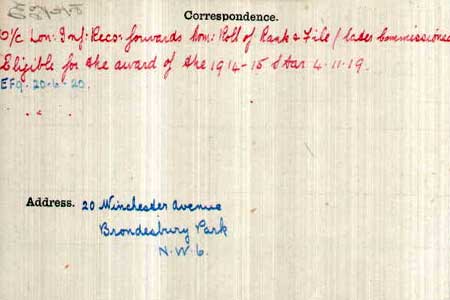 Correspondence.
O/c Lon: Inf: Reco: forwards Nom: Roll of Rank & File / later Commissioned
Eligible for the award of the 1914-15 Star 4.11.19.
EF9. 20-6-20.
Address. 20 Winchester Avenue
Brondesbury Park
N.W.6.